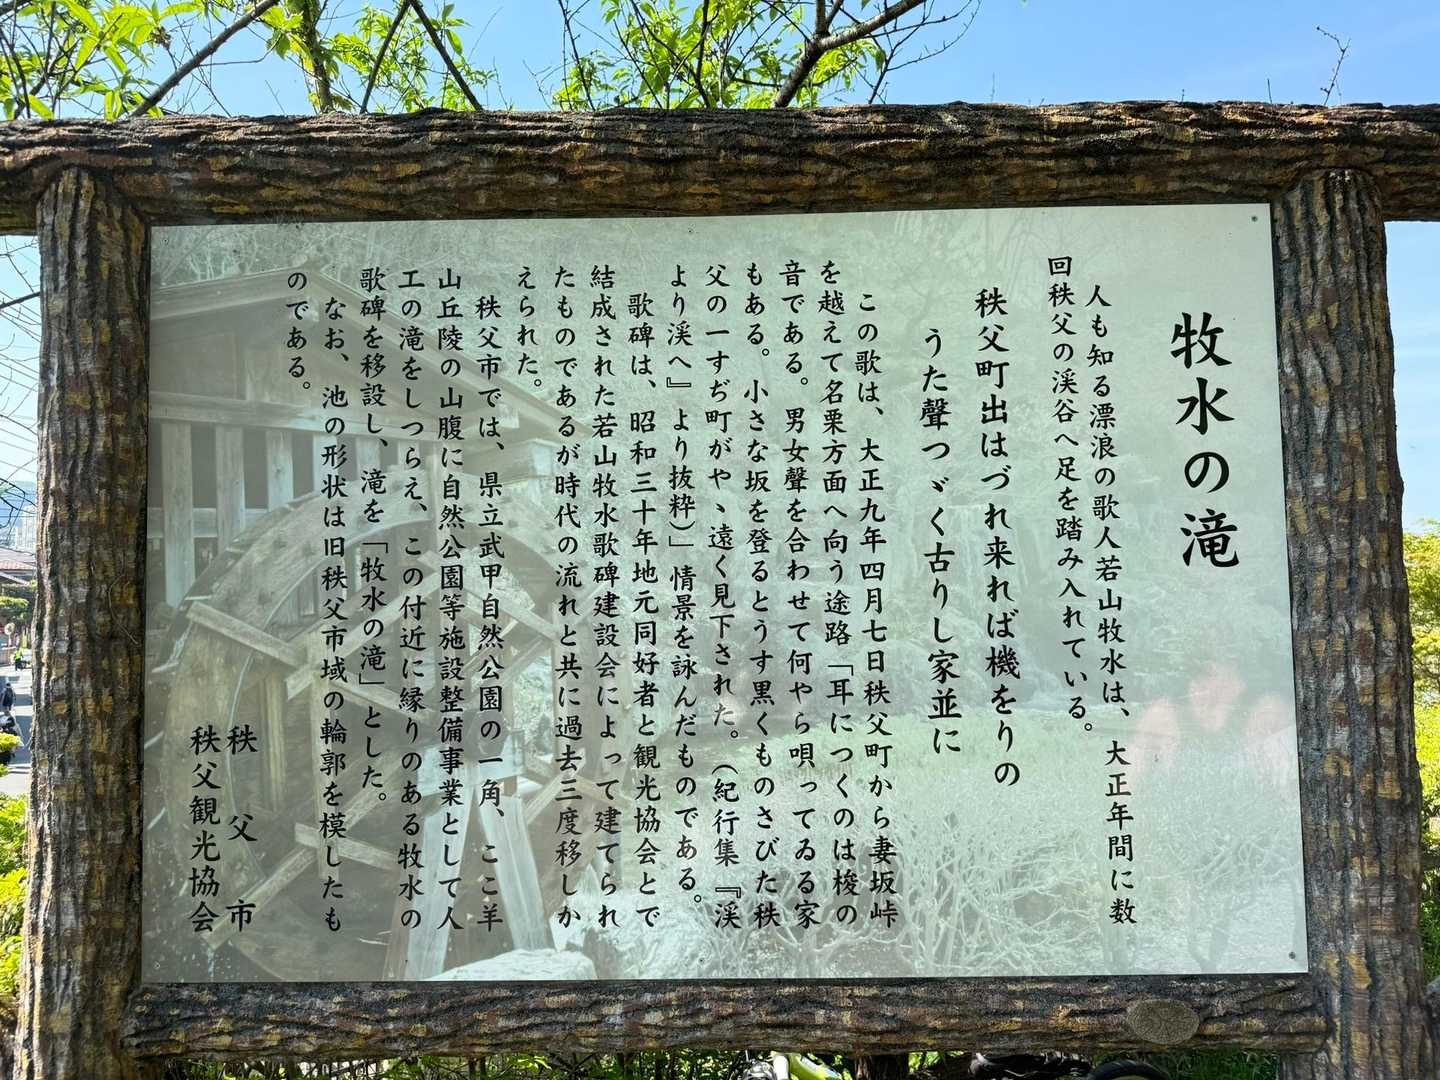 牧水の滝
人も知る漂浪の歌人若山牧水は、大正年間に数
回秩父の渓谷へ足を踏み入れている。
秩父町出はづれ来れば機をりの
うた聲つゞく古りし家並に
この歌は、大正九年四月七日秩父町から妻坂峠
を越えて名栗方面へ向う途路「耳につくのは梭の
音である。男女聲を合わせて何やら唄ってゐる家
もある。小さな坂を登るとうす黒くものさびた秩
父の一すぢ町がやゝ遠く見下された。（紀行集『渓
より渓へ』より抜粋）」情景を詠んだものである。
歌碑は、昭和三十年地元同好者と観光協会とで
結成された若山牧水歌碑建設会によって建てられ
たものであるが時代の流れと共に過去三度移しか
えられた。
秩父市では、県立武甲自然公園の一角、ここ羊
山丘陵の山腹に自然公園等施設整備事業として人
工の滝をしつらえ、この付近に縁りのある牧水の
歌碑を移設し、滝を「牧水の滝」とした。
なお、池の形状は旧秩父市域の輪郭を模したも
のである。
秩父市
秩父観光協会